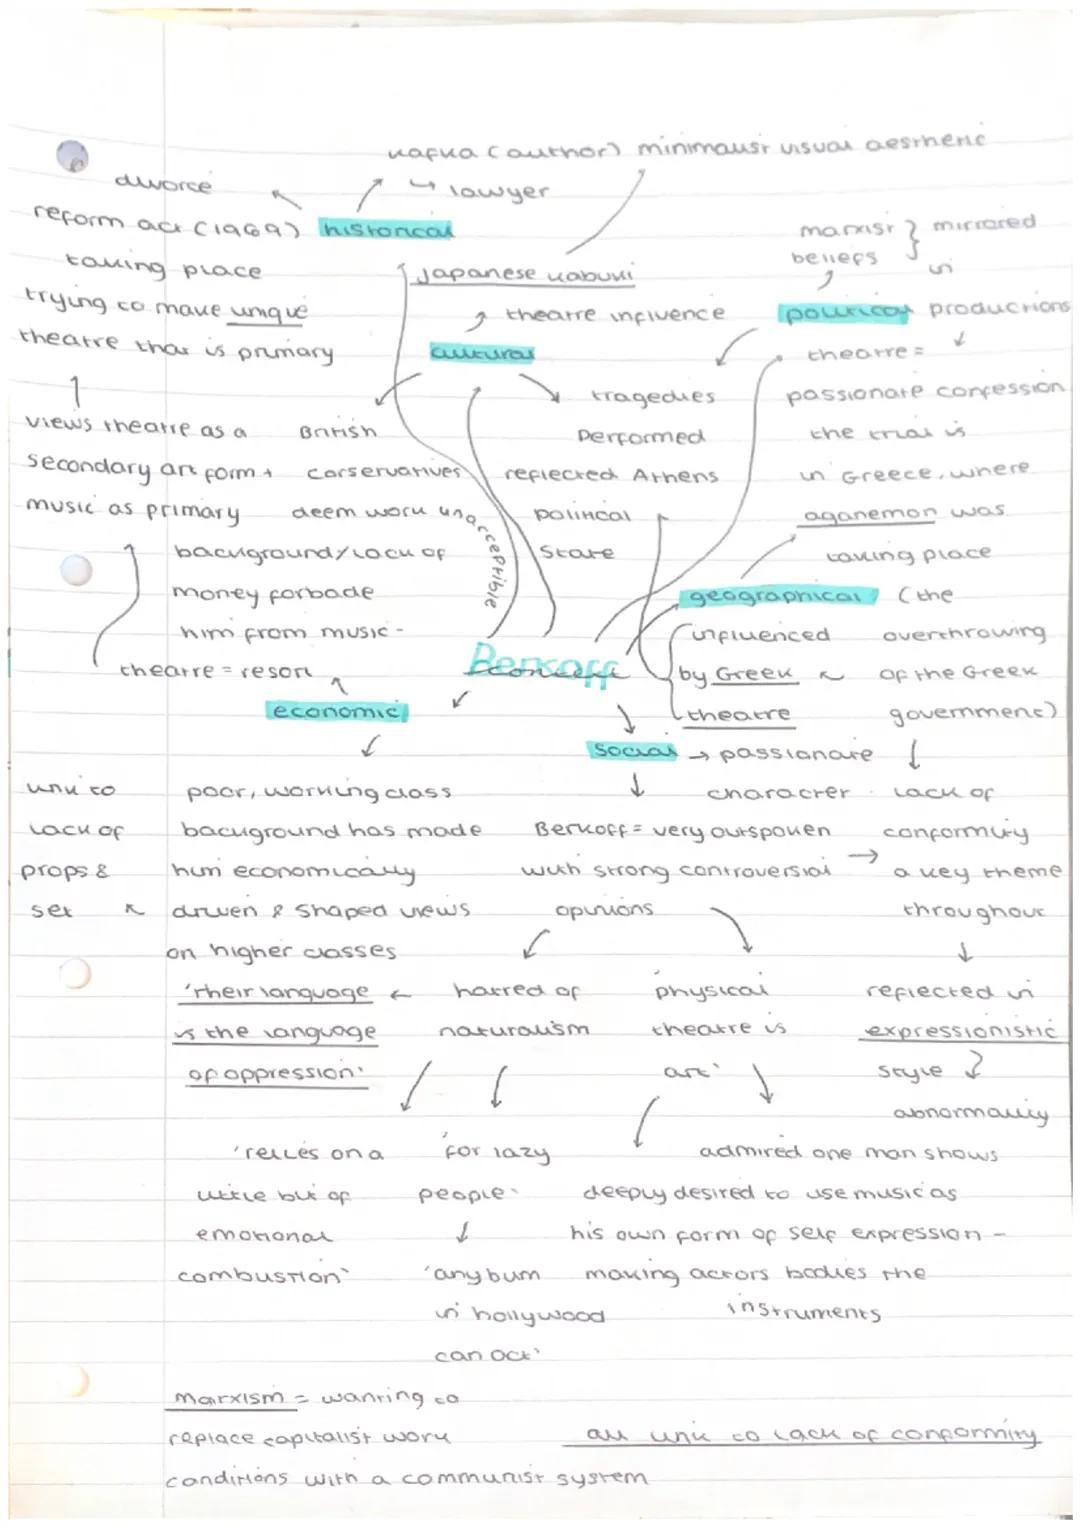 kafka (author) minimalist visual aesthetic
↳ lawyer
divorce
reform act (1969)
taking place
historical
japanese kabuki
theatre influence
cultural
marxist } mirrored
beliefs
in
political productions
theatre =
passionate confession
the trial is
in Greece, where
aganemon was
taking place
(the
overthrowing
of the Greek
government)
trying to make unique
theatre that is primary
views theatre as a
secondary art form +
music as primary
British
conservatives
deem work unacceptible
tragedies
performed
reflected Athens
political
state
background/lack of
money forbade
him from music -
theatre = resort
Berkoff
concept
geographical
influenced
by Greek
theatre
economic
social → passionate
character
poor, working class
background has made
him economically
driven & shaped views
on higher classes
link to
lack of
props &
set
Berkoff = very outspoken
with strong controversial
opinions
lack of
conformity
a key theme
throughout
reflected in
expressionistic
style
abnormality
'their language
is the language
of oppression'
hatred of
naturalism
physical
theatre is
art'
'relies on a
little bit of
emotional
combustion'
'for lazy
people'
'any bum
in hollywood
can act'
admired one man shows
deeply desired to use music as
his own form of self expression -
making actors bodies the
instruments
marxism = wanting to
replace capitalist work
conditions with a communist system
all link to lack of conformity